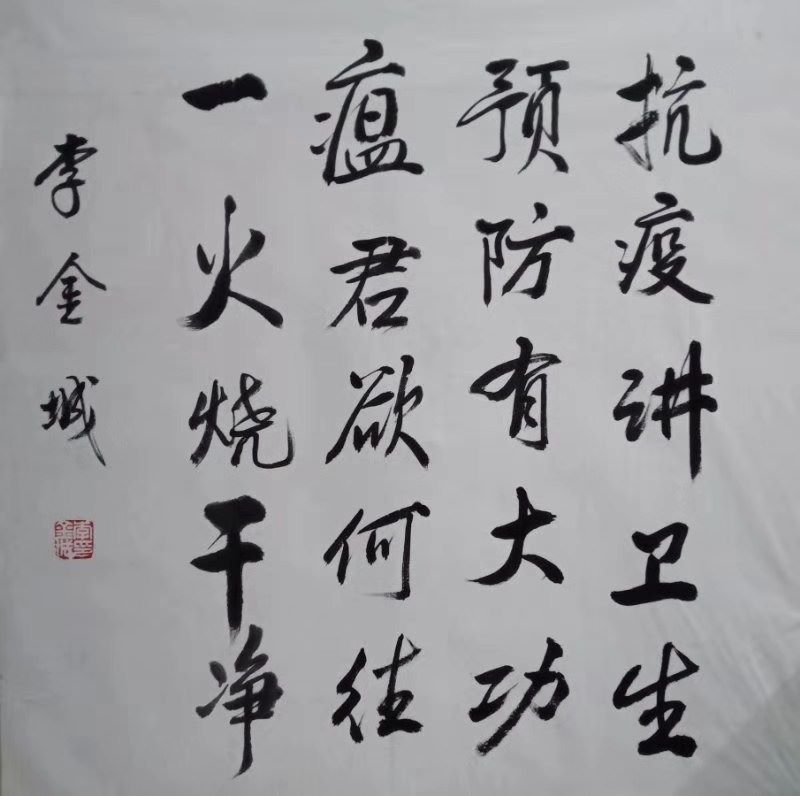 抗疫讲卫生
预防有大功
瘟君欲何往
一火烧干净
李金城